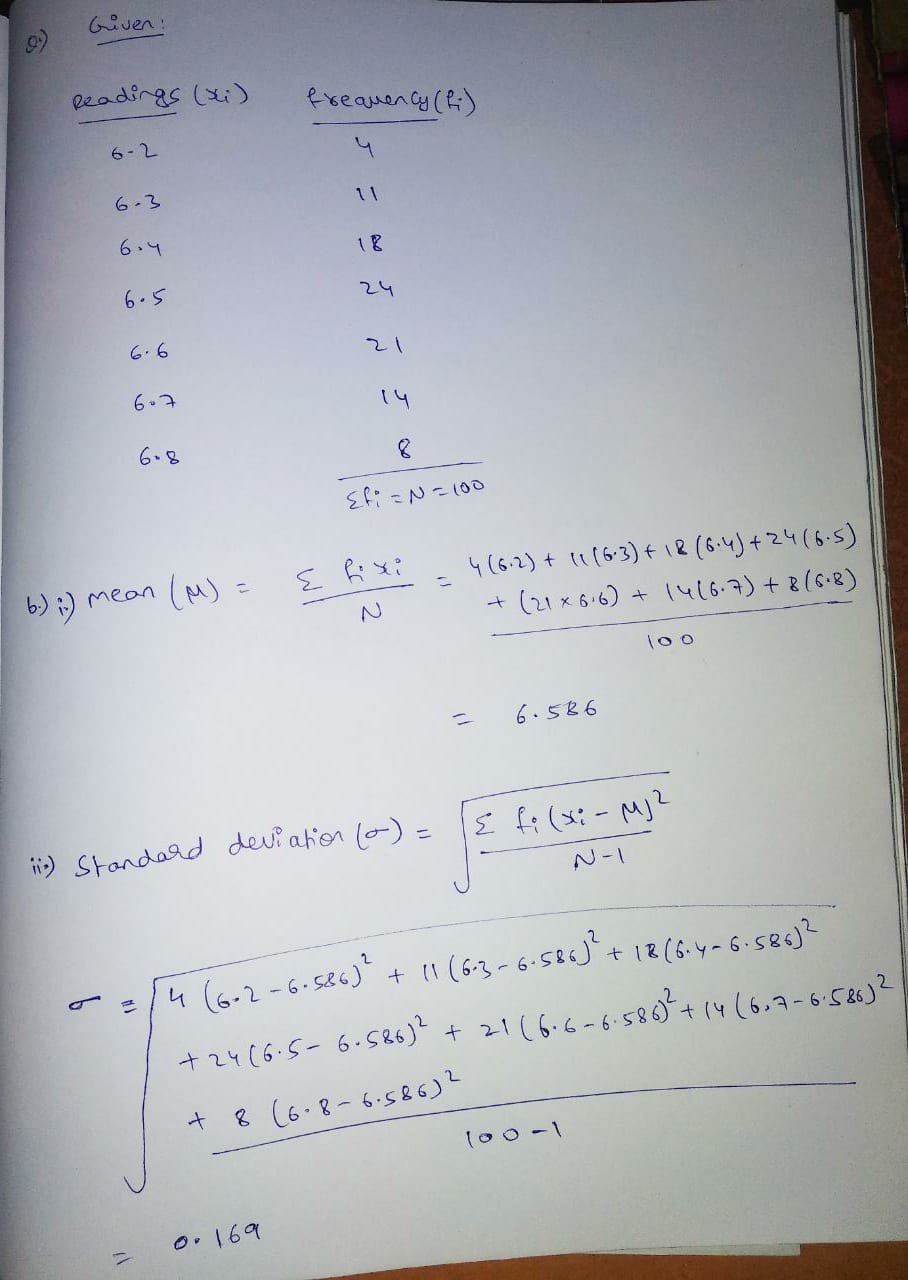 a.) Given:
Readings (xi) frequency (fi)
6.2 4
6.3 11
6.4 18
6.5 24
6.6 21
6.7 14
6.8 8
Σfi = N = 100
b.) i.) mean (μ) = Σ fixi / N = 4(6.2) + 11(6.3) + 18(6.4) + 24(6.5)
+ (21 x 6.6) + 14(6.7) + 8(6.8)
100
= 6.586
ii.) Standard deviation (σ) = √ Σ fi(xi - μ)² / N-1
σ = √ 4 (6.2 - 6.586)² + 11 (6.3 - 6.586)² + 18 (6.4 - 6.586)²
+ 24 (6.5 - 6.586)² + 21 (6.6 - 6.586)² + 14 (6.7 - 6.586)²
+ 8 (6.8 - 6.586)²
100 - 1
= 0.169